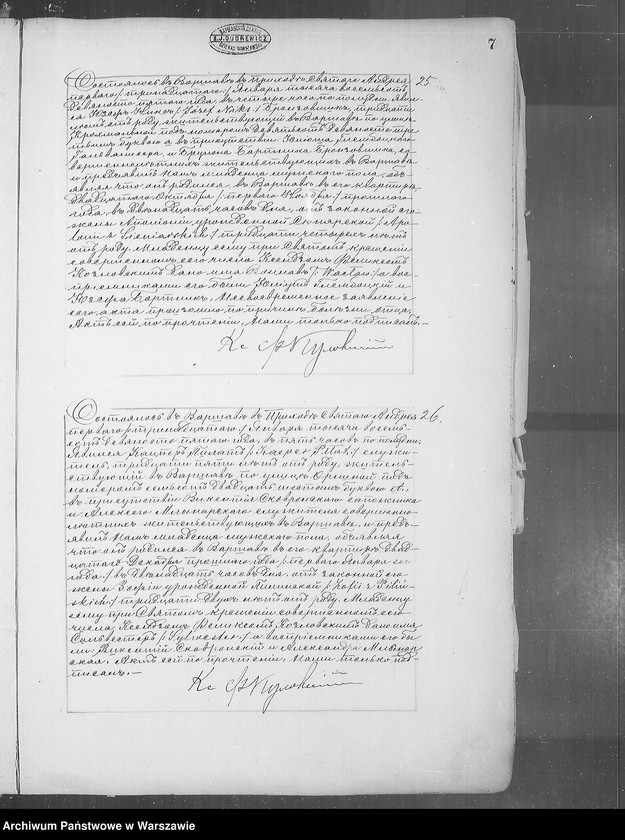 7
25
Состоялось въ Варшавѣ въ приходѣ Святаго Андрея
перваго /: тринадцатаго :/ Января тысяча восемьсотъ
девяносто пятаго года, въ четыре часа по полудни. Яви-
лся Юзефъ /: Józef
жительствующій въ Варшавѣ по улицѣ
Крохмальной подъ номеромъ девятьсотъ девяносто
буквою а въ присутствіи
и Бруно Бартника Бронзовщика, со-
вершеннолѣтнихъ жительствующихъ въ Варшавѣ
и предъявилъ Намъ младенца мужскаго пола, объ-
являя что онъ родился въ Варшавѣ въ его квартирѣ
двадцатаго Октября /: перваго Ноября :/ прошлаго
года, въ двѣнадцать часовъ дня, отъ законной его
жены Аполоніи урожденной /: Apo-
lonii z :/ тридцати четырехъ лѣтъ
отъ роду. Младенцу сему при Святомъ крещеніи
совершенномъ его числа Ксендзомъ Феликсомъ
Козловскимъ дано имя Вацлавъ /: Wacław :/ а вос-
пріемниками его были
и Юзефа Бартникъ. Несвоевременное заявленіе
сего акта произошло по причинѣ болѣзни отца.
Актъ сей по прочтеніи, Нами только подписанъ.—
Кс
26.
Состоялось въ Варшавѣ въ Приходѣ Святаго Андрея
перваго /: тринадцатаго :/ Января тысяча восемь-
сотъ девяносто пятаго года, въ пять часовъ по полудни.
Явился Касперъ Пилатъ /: Kacper Piłat :/ служи-
тель, тридцати пяти лѣтъ отъ роду, житель-
ствующій въ Варшавѣ по улицѣ Орешной подъ
номеромъ семьсотъ двадцать шестымъ буквою А.
въ присутствіи Викентія Сковронскаго сапожника
и Алексѣя Млынарскаго служителя совершенно-
лѣтнихъ жительствующихъ въ Варшавѣ, и предъ-
явилъ Намъ младенца мужскаго пола, объявляя
что онъ родился въ Варшавѣ въ его квартирѣ двад-
цатаго Декабря прошлаго года /: перваго Января сего
года :/ въ двѣнадцать часовъ дня, отъ законной его
жены Зофіи урожденной /: Zofii z
:/ тридцати двухъ лѣтъ отъ роду. Младенцу
сему при Святомъ крещеніи совершенномъ его
числа, Ксендзомъ Феликсомъ Козловскимъ дано имя
Сильвестеръ /: Sylwester :/ а воспріемниками его бы-
ли: Викентій Сковронскій и Александра Млынар-
ская. Актъ сей по прочтеніи, Нами только под-
писанъ.—
Кс
Archiwum Państwowe w Warszawie